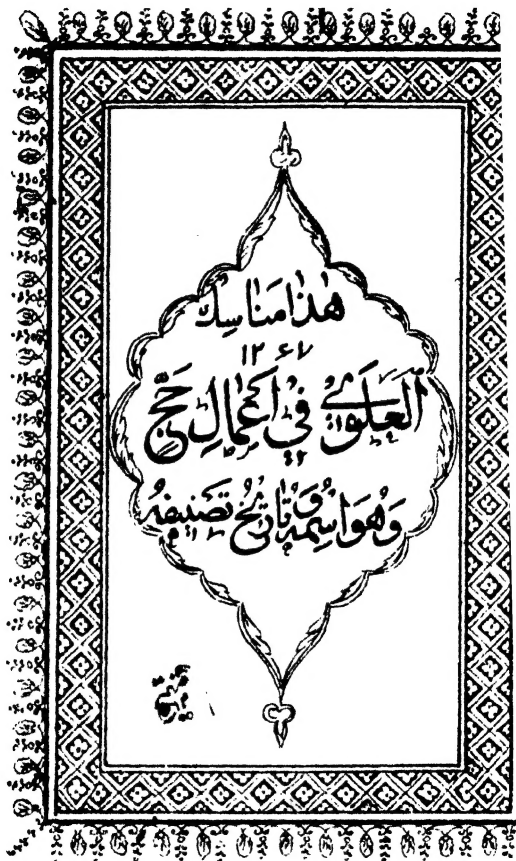 هٰذا مَناسِك
١٢۶٧
اَلعَلَوِيْ فِيْ اَعْمالِ حَجّ
وَهُوَ اسمهُ وَ تاريخُ تَصْنيفِه